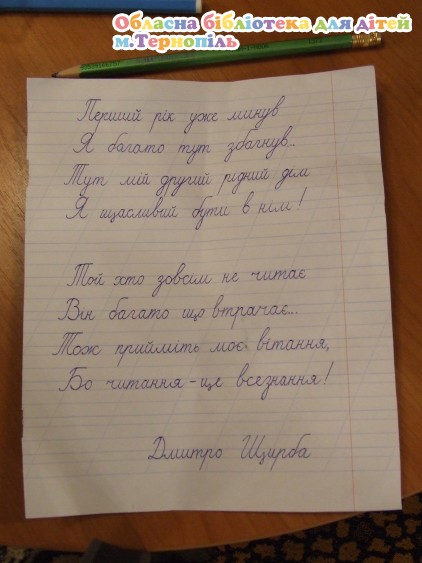 Обласна бібліотека для дітей
м.Тернопіль
Перший рік уже минув
Я багато тут збагнув..
Тут мій другий рідний дім
Я щасливий бути в нім!
Той хто зовсім не читає
Він багато що втрачає...
Тож прийміть моє вітання,
Бо читання - це всезнання!
Дмитро Щирба